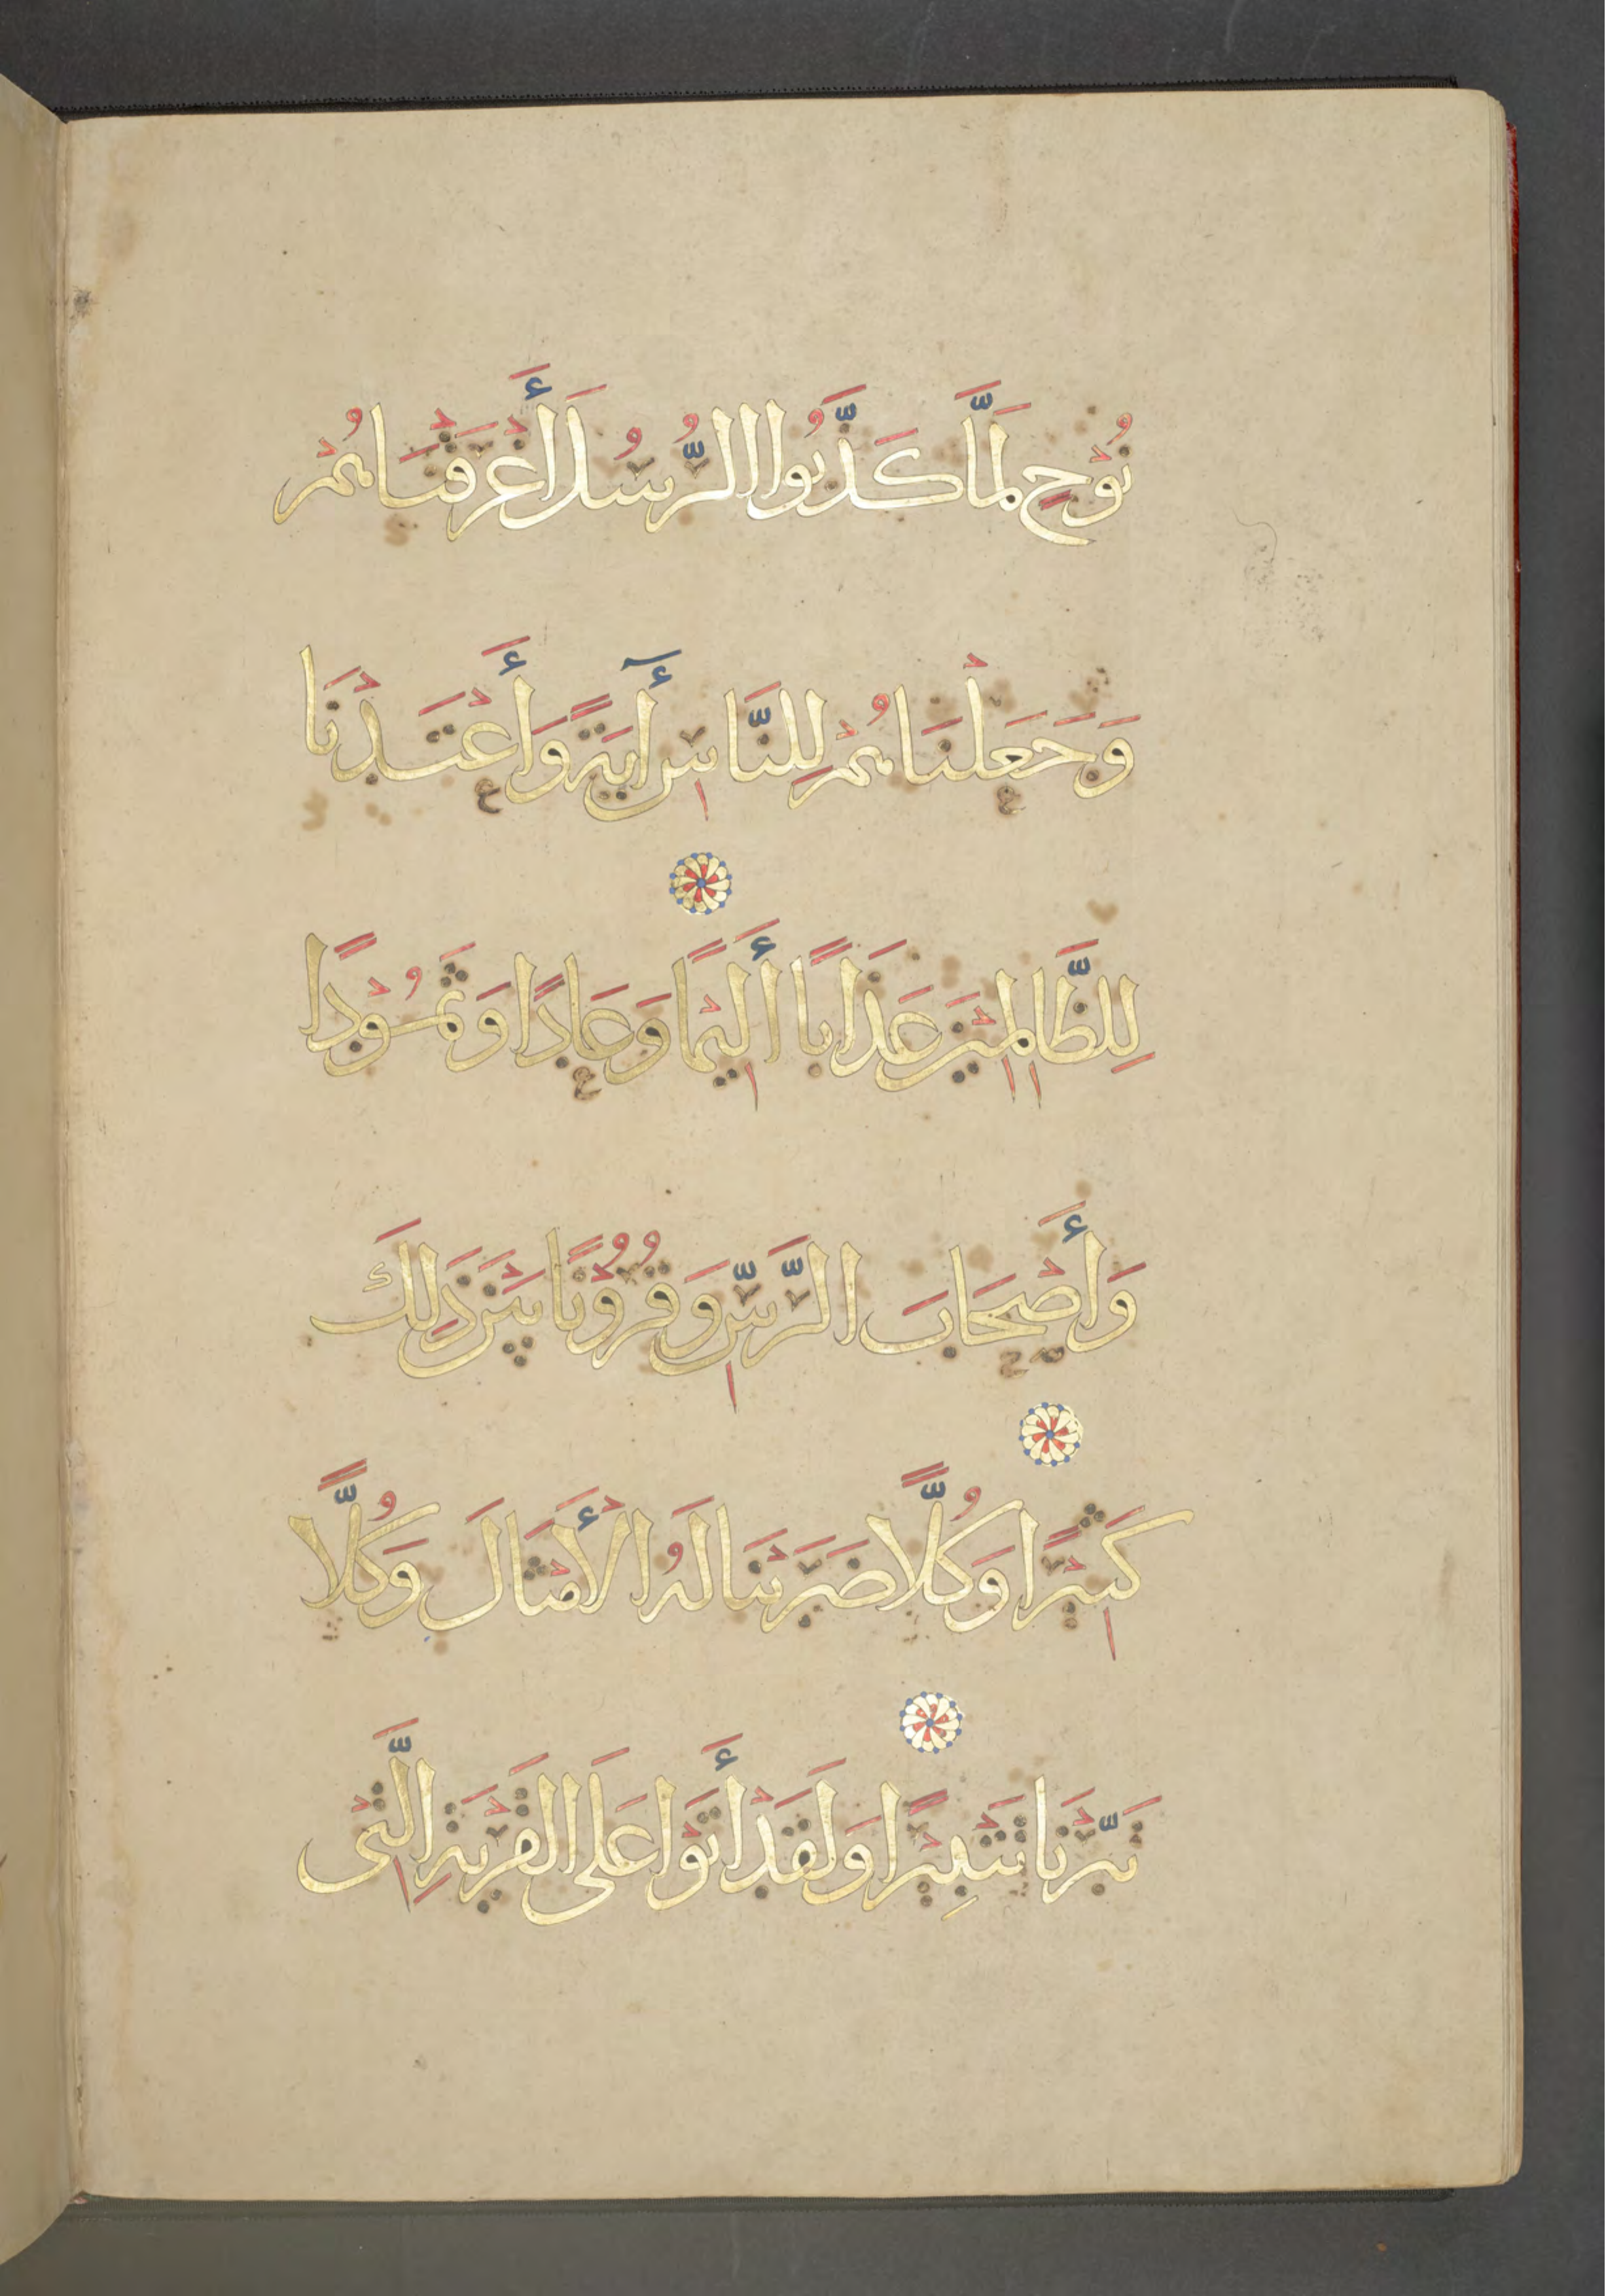 نُوْحٍ لَمَّا كَذَّبُوا الرُّسُلَ أَغْرَقْنَاهُمْ
وَجَعَلْنَاهُمْ لِلنَّاسِ أٓيَةً وَأَعْتَدْنَا
لِلظَّالِمِيْنَ عَذَابًا أَلِيْمًا وَعَادًا وَثَمُوْدًا
وَأَصْحَابَ الرَّسِّ وَقُرُوْنًا بَيْنَ ذَلِكَ
كَثِيْرًا وَكُلًّا ضَرَبْنَا لَهُ الْأَمْثَالَ وَكُلًّا
تَبَّرْنَا تَتْبِيْرًا وَلَقَدْ أَتَوْا عَلَى الْقَرْيَةِ الَّتِيْ